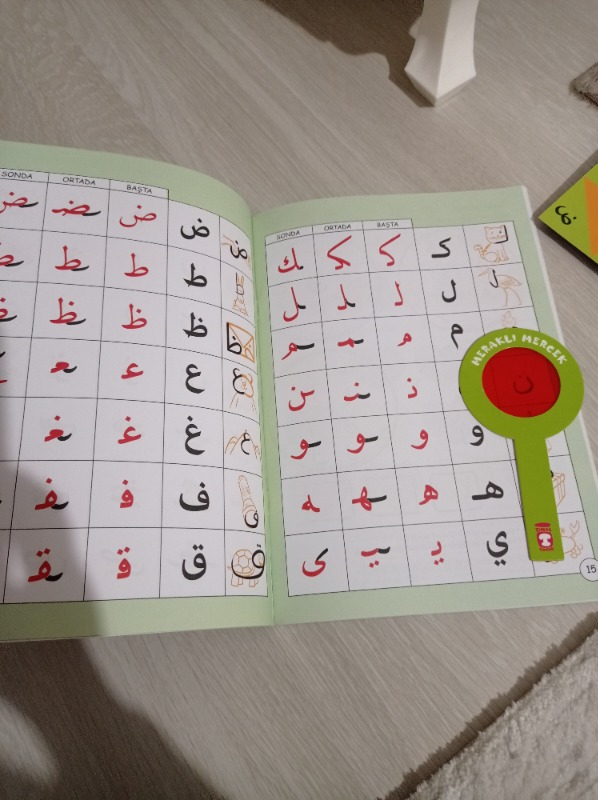 SONDA ORTADA BAŞTA
ض ض ضـ ـضـ ـض
ط ط طـ ـطـ ـط
ظ ظ ظـ ـظـ ـظ
ع ع عـ ـعـ
غ غ غـ ـغـ
ف ف فـ ـفـ
ق ق قـ ـقـ
SONDA ORTADA BAŞTA
ك كـ كـ ـكـ ـك
ل ل لـ ـلـ ـل
م مـ ـمـ ـم
MERAKLI MERCEK
ن نـ ـنـ ـن
و و ـو ـو
هـ هـ ـهـ ـه
ي يـ ـيـ ـى
15
ض